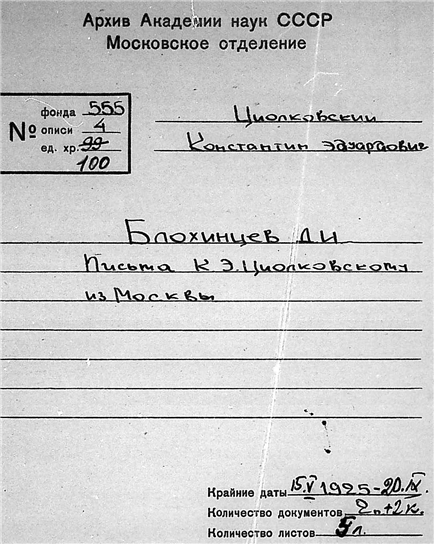 Архив Академии наук СССР
Московское отделение
№ фонда 555
описи 4
ед. хр. 99
100
Циолковский
Константин Эдуардович
Блохинцев Д.И
Письма К.Э.Циолковскому
из Москвы
Крайние даты 15.V 1925-20.IX
Количество документов 2п+2к.
Количество листов л.